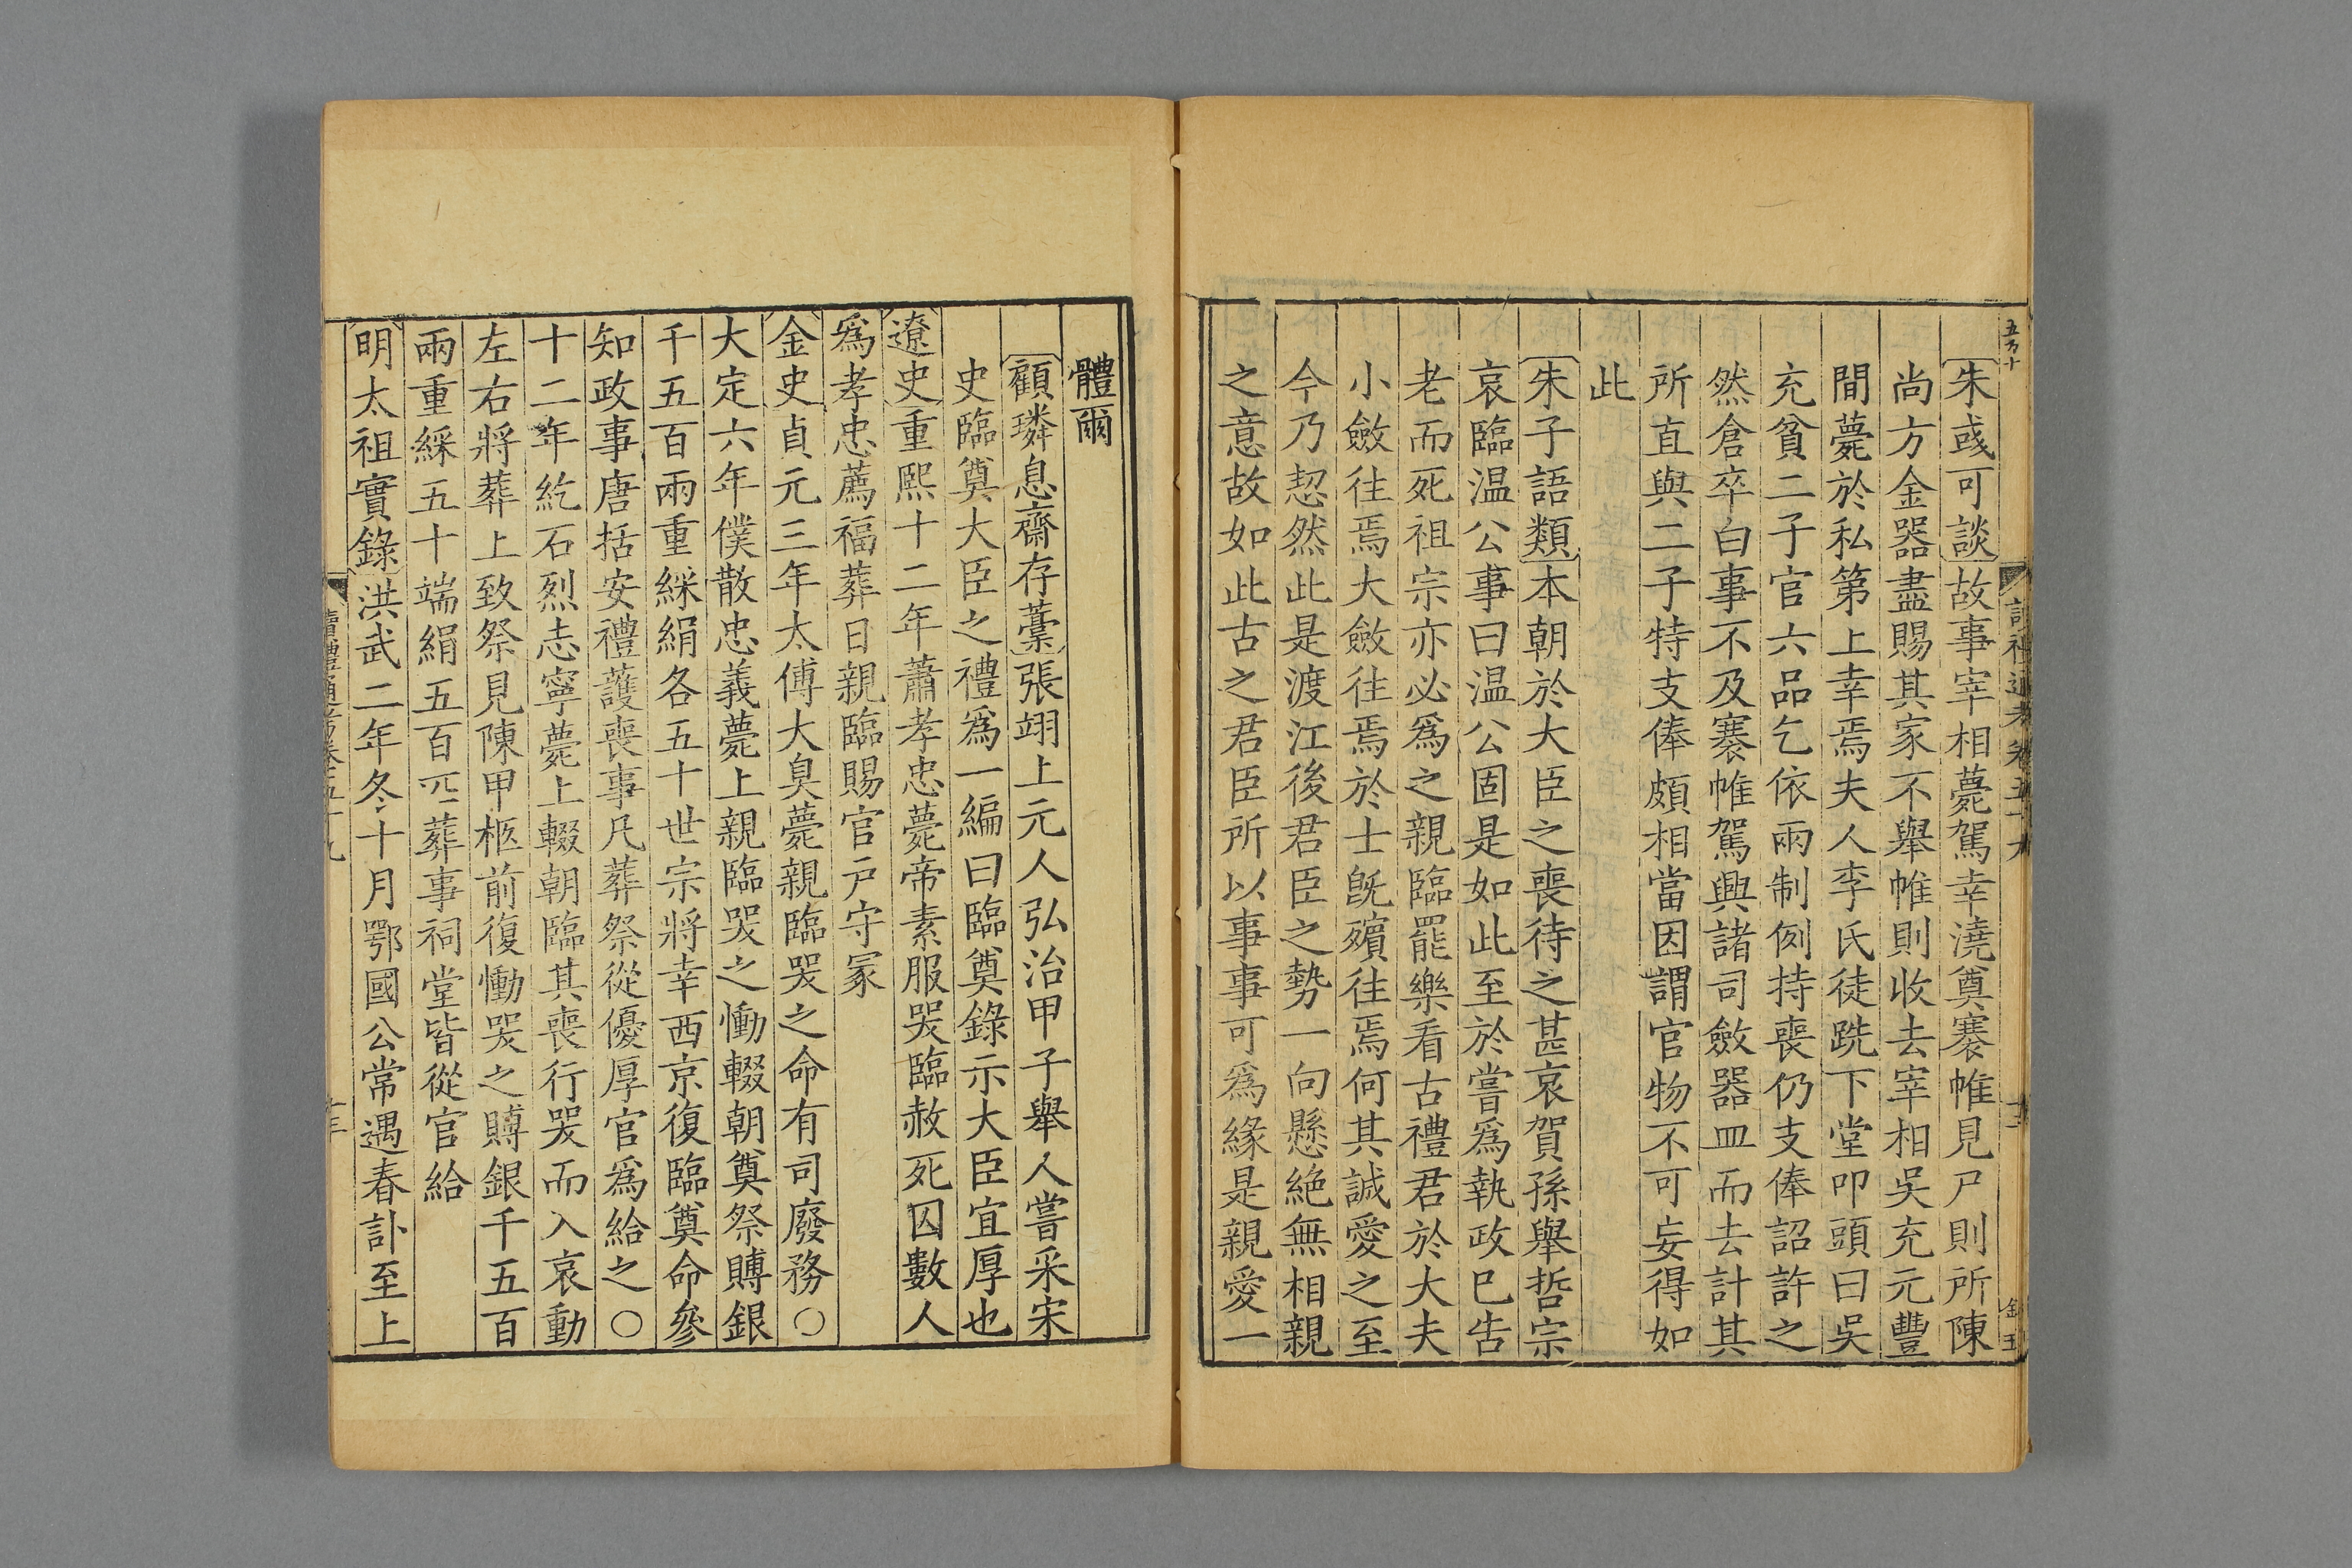 朱彧可談故事宰相薨駕幸澆奠褰帷見尸則所陳
尚方金器盡賜其家不舉帷則收去宰相吳充元豐
間薨於私第上幸焉夫人李氏徒跣下堂叩頭曰吳
充貧二子官六品乞依兩制例持喪仍支俸詔許之
然倉卒白事不及褰帷駕興諸司斂器皿而去計其
所直與二子特支俸頗相當因謂官物不可妄得如
此
朱子語類本朝於大臣之喪待之甚哀賀孫舉哲宗
哀臨温公事曰温公固是如此至於嘗爲執政已告
老而死祖宗亦必爲之親臨罷樂看古禮君於大夫
小斂往焉大斂往焉於士旣殯往焉何其誠愛之至
今乃恝然此是渡江後君臣之勢一向懸絶無相親
之意故如此古之君臣所以事事可爲緣是親愛一
體爾
顧璘息齋存藳張翊上元人弘治甲子舉人嘗采宋
史臨奠大臣之禮爲一編曰臨奠錄示大臣宜厚也
遼史重熙十二年蕭孝忠薨帝素服哭臨赦死囚數人
爲孝忠薦福葬日親臨賜官戸守冡
金史貞元三年太傅大㚖薨親臨哭之命有司廢務○
大定六年僕散忠義薨上親臨哭之慟輟朝奠祭賻銀
千五百兩重綵絹各五十世宗將幸西京復臨奠命參
知政事唐括安禮護喪事凡葬祭從優厚官爲給之○
十二年紇石烈志寧薨上輟朝臨其喪行哭而入哀動
左右將葬上致祭見陳甲柩前復慟哭之賻銀千五百
兩重綵五十端絹五百匹葬事祠堂皆從官給
明太祖實錄洪武二年冬十月鄂國公常遇春訃至上